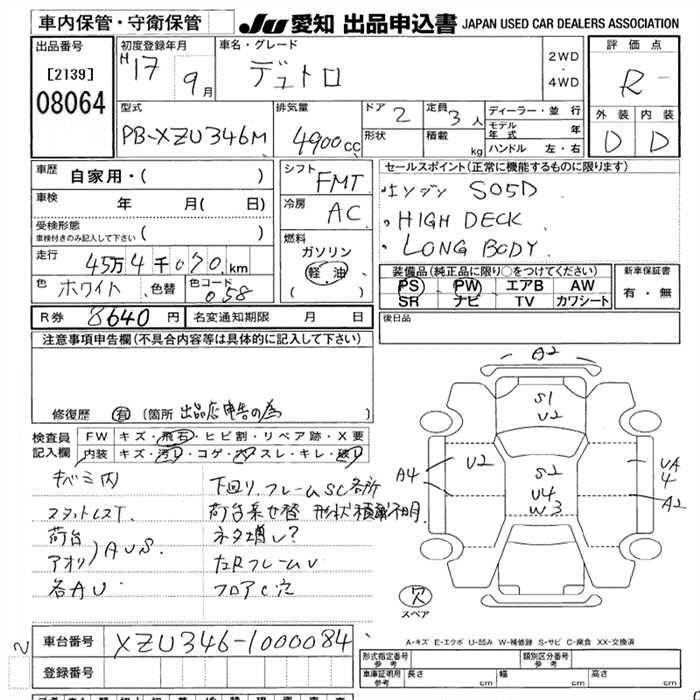 車内保管・守衛保管
JU 愛知 出品申込書 JAPAN USED CAR DEALERS ASSOCIATION
出品番号
[2139]
08064
初度登録年月
H17 9月
車名・グレード
デュトロ
2WD
・
4WD
評価点
R
外装 内装
D D
型式
PB-XZU346M
排気量
4900cc
ドア 2
形状
定員 3人
積載 kg
ディーラー・並行
モデル年式 年
ハンドル 左・右
車歴
自家用・( )
車検 年 月( 日)
受検形態
車検付きのみ記入して下さい ( )
走行 45万4千070km
色 ホワイト 色替 色コード 058
シフト
FMT
冷房
AC
燃料
ガソリン
軽油
( )
セールスポイント(正常に機能するものに限ります)
・エンジン S05D
・HIGH DECK
・LONG BODY
装備品(純正品に限り○をつけてください)
PS PW エアB AW
SR ナビ TV カワシート
新車保証書
有・無
R券 8640円 名変通知期限 月 日
後日品
注意事項申告欄(不具合内容等は具体的に記入して下さい)
修復歴 有 (箇所 出品店申告の為
検査員記入欄
FW キズ・飛石・ヒビ割・リペア跡・X要
内装 キズ・汚レ・コゲ・穴・スレ・キレ・破レ
キバミ内
スタットレスT.
荷台
アオリ)AUS.
各AU
下回り.フレームSC各所
荷台乗せ替 形状積載不明.
ネタ増し?
左Rフレームu
フロアC穴
A2
S1
U2
U2
A4
S2
U4
W3
UA
4
A2
欠
スペア
A-キズ E-エクボ U-凹み W-補修跡 S-サビ C-腐食 XX-交換済
車台番号 XZU346-1000084
登録番号
形式指定番号
参考
類別区分番号
参考
車庫証明用
参考
長さ cm 幅 cm 高さ cm